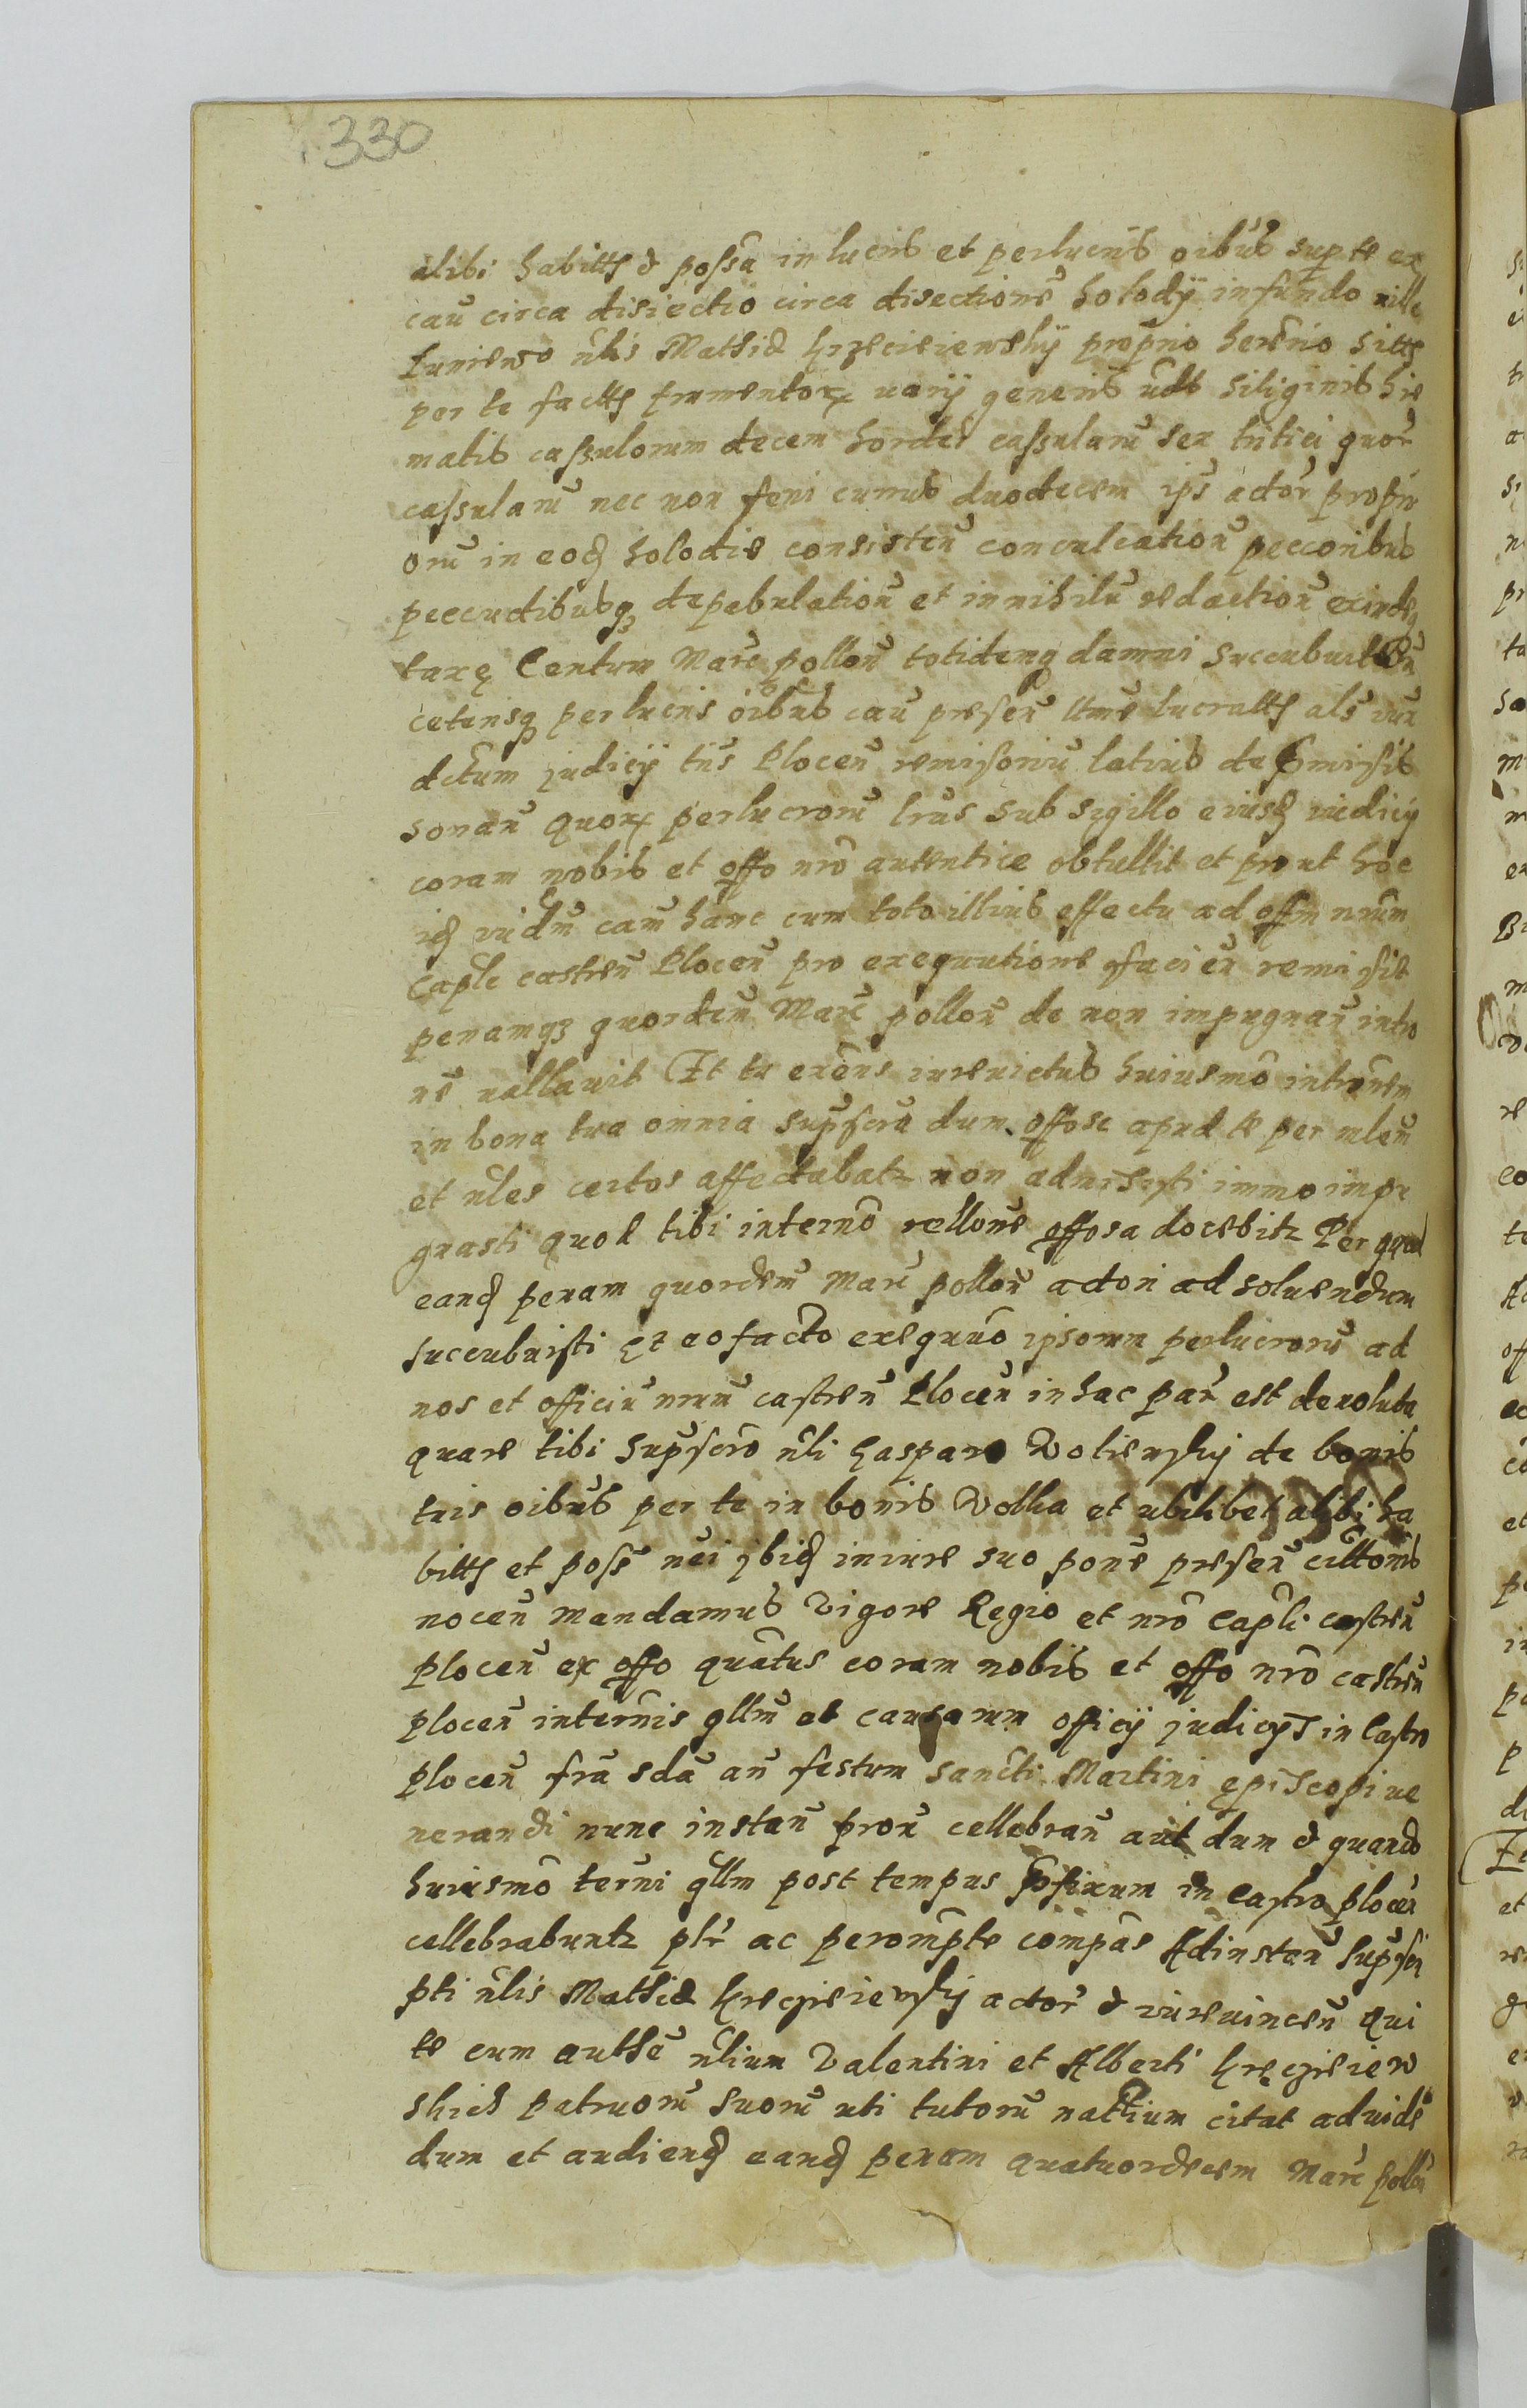 330
alibi habitts & possā in lucris et perlucris oibus sup te ex
cau circa disiectio circa disectione holodÿ in fundo
Luniewo nlis Mathiæ Krzecziewskÿ proprio hereñio sitts
per te factts frumentorx uarÿ generis udt siliginis hie
matis cassulorum decem hordei cassularū sex tritici quor
cassularū nec non feni currus duodecem ips actor propri
orū in eod holodie consisten conculcation peccoribus
peccudibusq depabulation et in nihilū redaction exindeq
taxę Centum Marc pollon totidemq damni succubuit
ceterisq perlucris oibus cau presen ttme lucratts als
dctum judicÿ tris Plocen remisoriū latius de pmissis
sonan quorx perlucrorū lras sub sigillo eiusd iudicÿ
coram nobis et offo nro autentice obtullit et prout hoc
id iudm cam hanc cum toto illius effectu ad offm nrum
Caple castren Plocen pro exequutione facien remisit
penamqz quordcm Marc pollon de non impugnan intro
ne vallavit Et tu exens iurevictus huiusmo intronem
in bona tua omnia supscra dum offose apud te per mlem
et nles certos affectabatz non admisisti immo impu
gnasti quod tibi in termo rellone offosa docebitz Per quod
eand penam quordcem Marc pollon actori ad soluendum
succubuisti Et eo facto exequuo ipsorum perlucrorū ad
nos et officiū nrum castren Plocen in hac par est devoluta
quare tibi supscro nli Gasparo Wolienskÿ de bonis
tuis oibus per te in bonis Wolka et ubilibet alibi ha
bitts et poss nei jbid in iure suo pone presen cittonis
nocen mandamus Vigore Regio et nro Capli castren
Plocen ex offo quatus coram nobis et offo nro castren
plocen in termis qllm et causarum officÿ judicÿs in Castro
plocen fra sda an festum sancti Martini episcopi ue
nerandi nunc instan pron cellebran aut dum & quando
huiusmo termi qllm post tempus pfixum in Castro plocen
cellebrabuntz pltr ac peromple compas Ad instan supscri
pti nlis Mathiæ Krzecziewskÿ actor & iurevincen qui
te cum authe nlium Valentini et Alberti Krzecziew
skich patruorū suorū uti tutorū nattium citat ad uide
dum et audiend eand penam quatuordecem Marc pollon